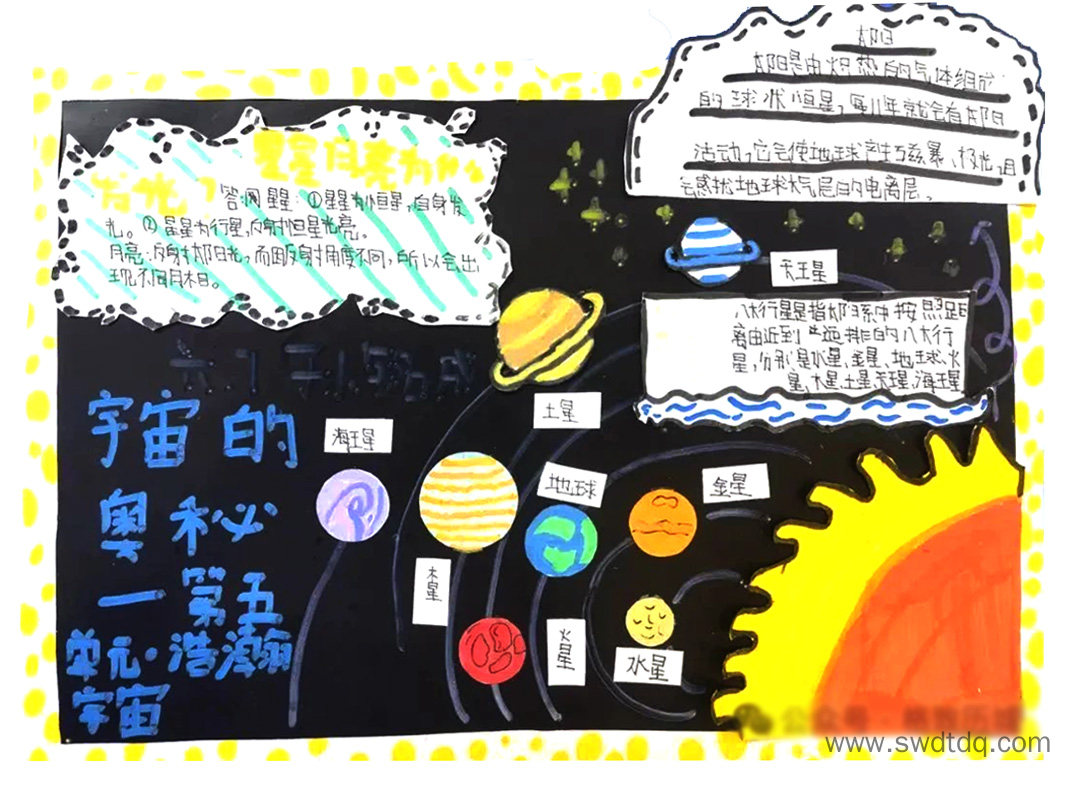 太阳
太阳是由炽热的气体组成
的球状恒星,每11年就会有太阳
活动,它会使地球产生磁暴、极光,且
会感扰地球大气层的电离层。
星星月亮为什么
发光?
答:闪星星:①星星为恒星,自身发
光。②星星为行星,反射恒星光亮。
月亮:反射太阳光,而因反射角度不同,所以会出
现不同月相。
天王星
八大行星是指太阳系中按照距
离由近到远排的八大行
星,分别是水星、金星、地球、火
星、木星、土星、天王星、海王星
土星
海王星
地球
金星
木星
火星
水星
宇宙的
奥秘
一第五
单元·浩瀚
宇宙
www.swdtdq.com